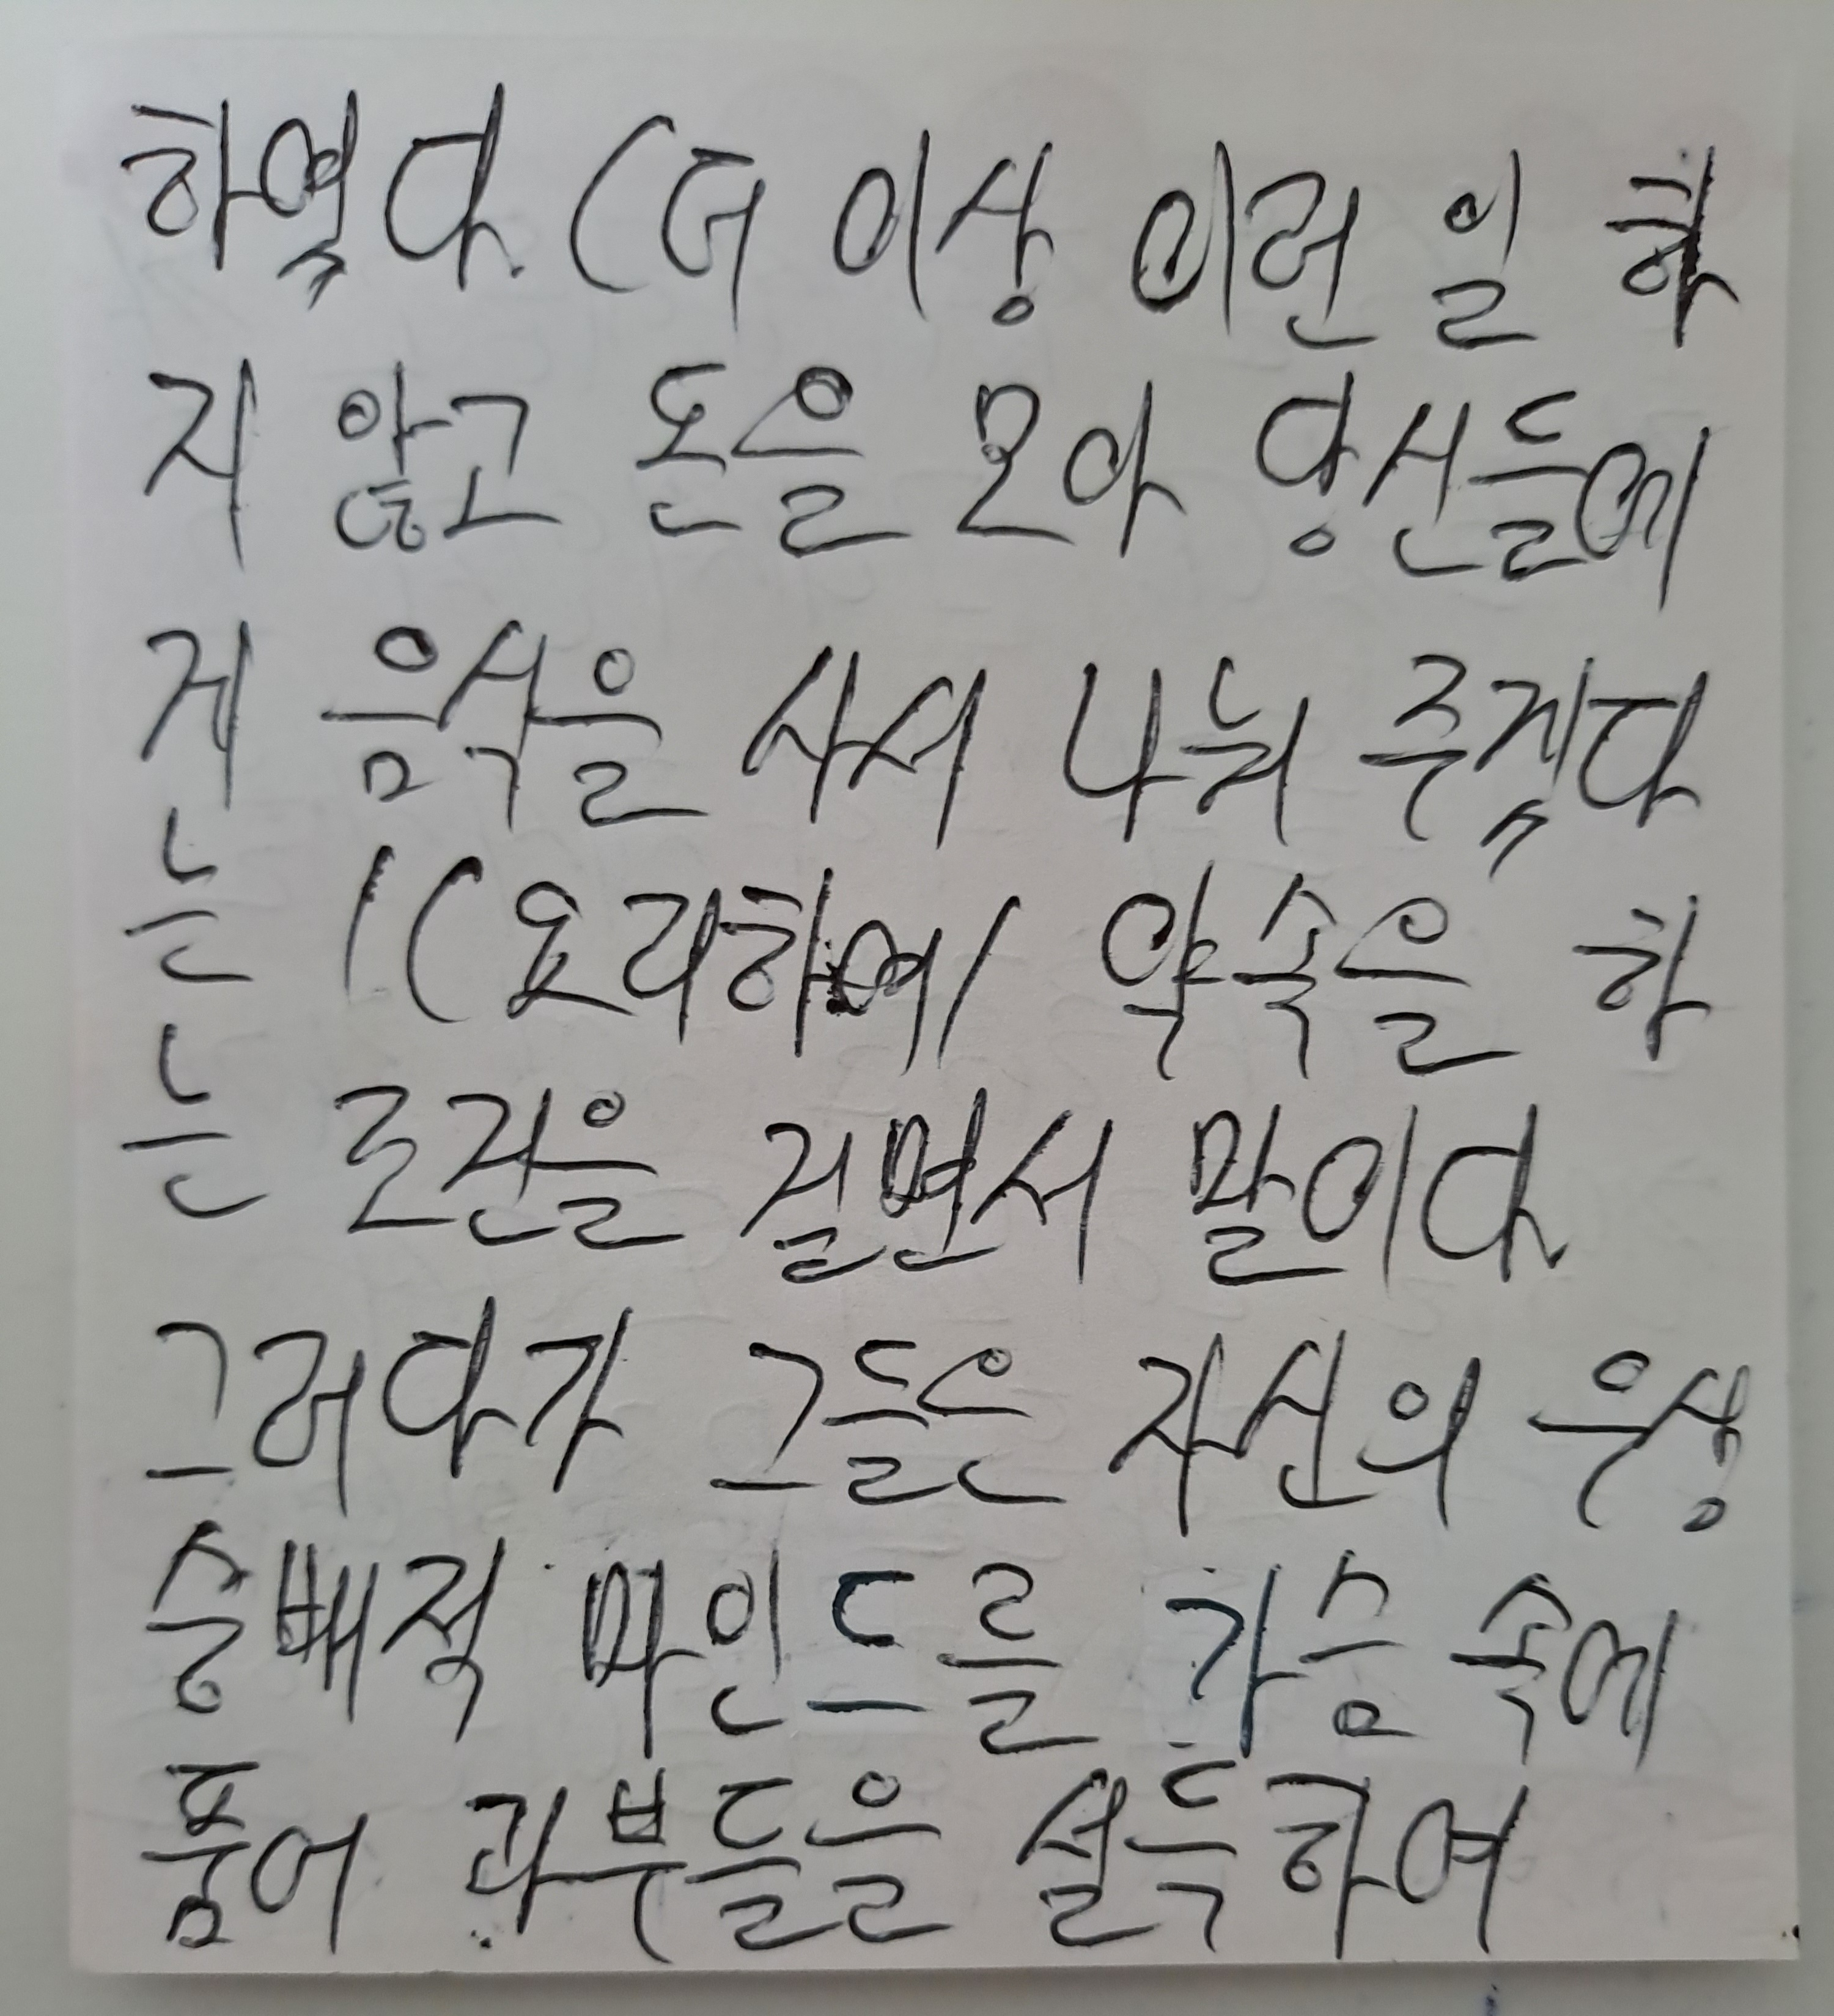 하였다. (더 이상 이런 일 하
지 않고 돈을 모아 당신들에
게 음식을 사서 나눠 주겠다
는 / (요리하여/ 약속을 하
는 조건을 걸면서 말이다.
그러다가 그들은 자신의 우상
숭배적 마인드를 가슴 속에
품어 과부들을 설득하여